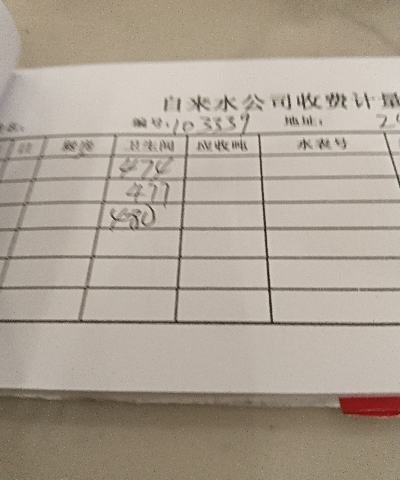 自来水公司收费计量
编号:103339 地址: 2
卫生间 应收吨 水表号
474
477
480